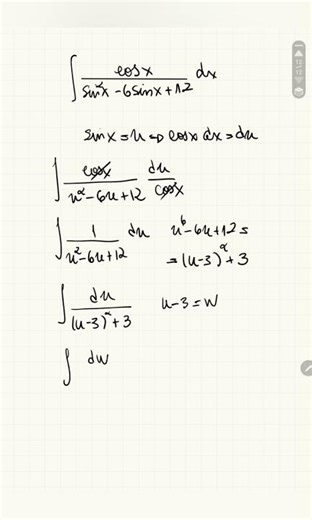 ∫ cosx / (sin²x - 6sinx + 12) dx
sinx = u ⇒ cosx dx = du
∫ cosx / (u² - 6u + 12) du / cosx
∫ 1 / (u² - 6u + 12) du u⁶ - 6u + 12 =
= (u-3)² + 3
∫ du / ((u-3)² + 3) u-3 = w
∫ dw